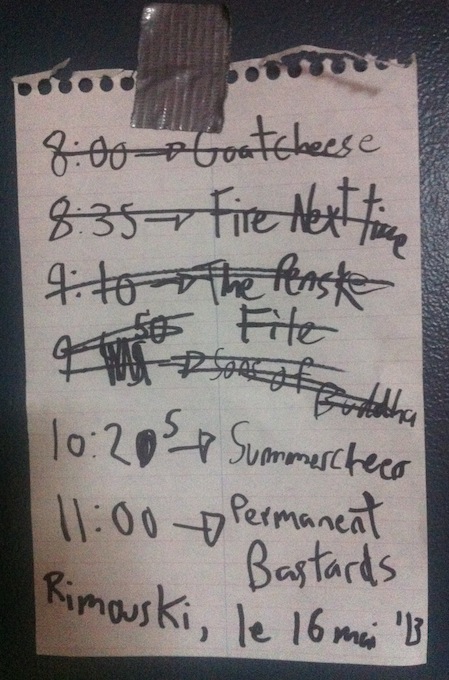 8:00 → Goatcheese
8:35 → Fire Next time
9:10 → The Penske
File
9 50 → Sons of Buddha
10:25 → Summercheer
11:00 → Permanent
Bastards
Rimouski, le 16 mai '13